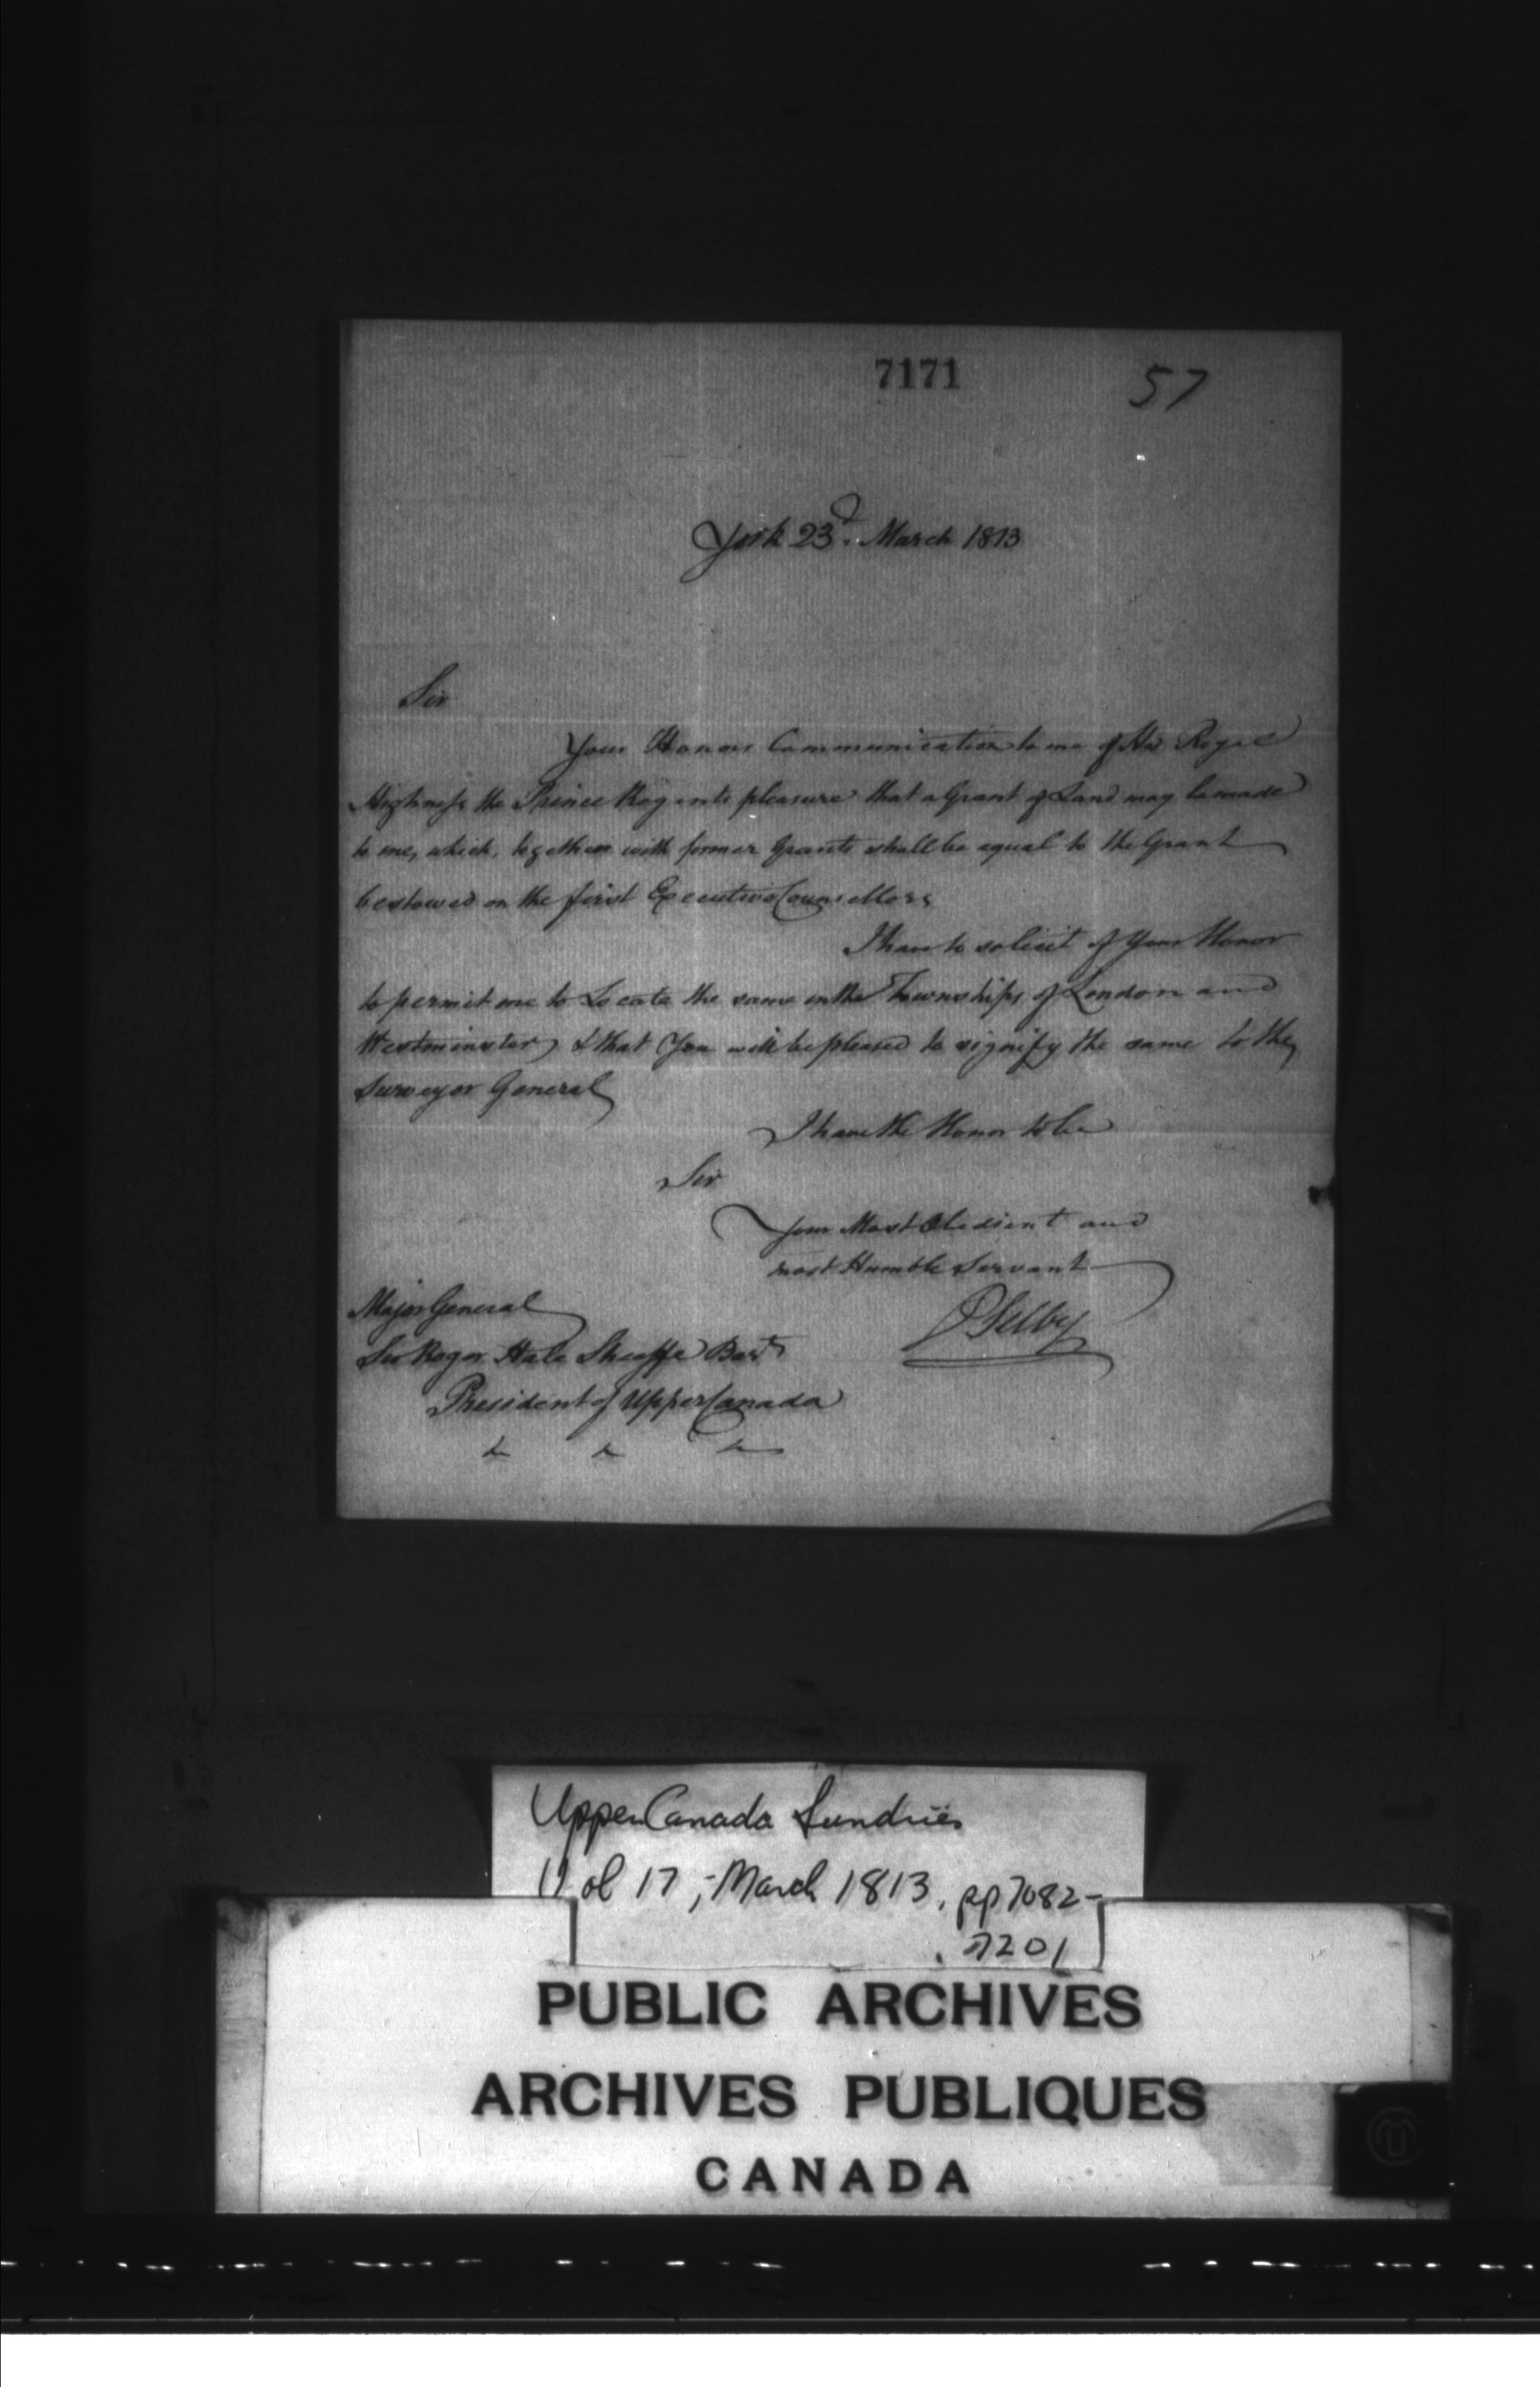 7171
57
York 23d. March 1813
Sir
Your Honors Communication to me of His Royal
Highness the Prince Regents pleasure that a Grant of Land may be made
to me, which, together with former Grants shall be equal to the Grant
bestowed on the first Executive Counsellors
I have to solicit of Your Honor
to permit me to Locate the same in the Townships of London and
Westminster, & that You will be pleased to signify the same to the
Surveyor General
I have the Honor to be
Sir
Your Most Obedient and
most Humble Servant
PSelby
Major General
Sir Roger Hale Sheaffe Bart
President of Upper Canada
&c &c &c
Upper Canada Sundries
Vol 17, - March 1813, pp 7082-
7201
PUBLIC ARCHIVES
ARCHIVES PUBLIQUES
CANADA